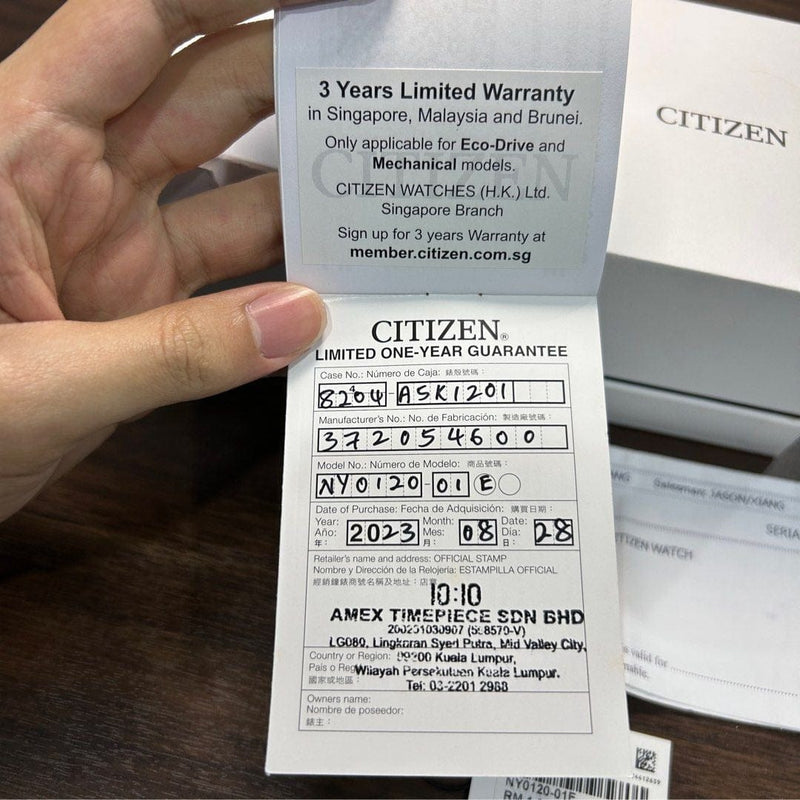 3 Years Limited Warranty
in Singapore, Malaysia and Brunei.
Only applicable for Eco-Drive and
Mechanical models.
CITIZEN WATCHES (H.K.) Ltd.
Singapore Branch
Sign up for 3 years Warranty at
member.citizen.com.sg
CITIZEN
CITIZEN®
LIMITED ONE-YEAR GUARANTEE
Case No.: Número de Caja: 錶殼號碼:
8204-ASK1201
Manufacturer's No.: No. de Fabricación: 製造廠號碼:
372054600
Model No.: Número de Modelo: 商品號碼:
NY0120-01 E
Date of Purchase: Fecha de Adquisición: 購買日期:
Year: Año: 年: 2023 Month: Mes: 月: 08 Date: Día: 日: 28
Retailer's name and address: OFFICIAL STAMP
Nombre y Dirección de la Relojería: ESTAMPILLA OFFICIAL
經銷鐘錶商號名稱及地址:店章
10:10
AMEX TIMEPIECE SDN BHD
LG080, Lingkaran Syed Putra, Mid Valley City,
Country or Region: Kuala Lumpur,
País o Wilayah Persekutuan Kuala Lumpur.
國家或地區:
Tel: 03-2201 2988
Owners name:
Nombre de poseedor:
錶主:
Salesman: JASON/XIANG
SERIA
TIZEN WATCH
valid for
NY0120-01E
RM